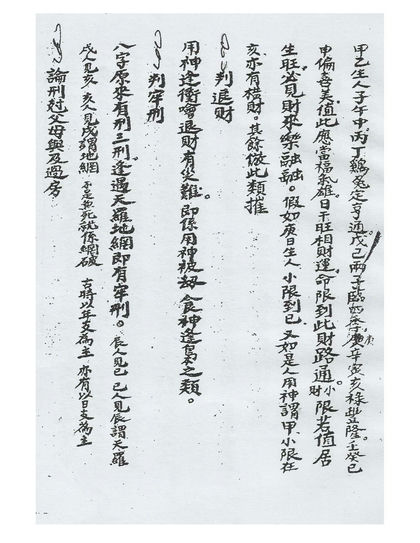 甲乙生人子午中。丙丁鷄兔定亨通。戊己兩子臨。庚辛寅亥祿豐隆。壬癸巳
申偏喜美。值此應當福氣雄。日干旺相財運。命限到此財路通。小限若值居
生旺。必見財來樂融融。假如庚日生人小限到巳。又如是人用神謂甲。小限在
亥亦有横財。其餘倣此類推
判退財
用神逢衝會退財有災難。即係用神被刼。食神逢梟之類。
判牢刑
八字原來有刑三刑。逢過天羅地網即有牢刑。辰人見巳 巳人見辰謂天羅
戌人見亥 亥人見戌謂地網 古時以年支為主 亦有以日支為主
論刑尅父母與及過房